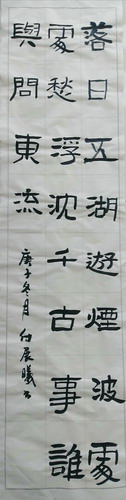 落日五湖遊煙波處
處愁浮沈千古事誰
與問東流
庚子冬月付展曦書